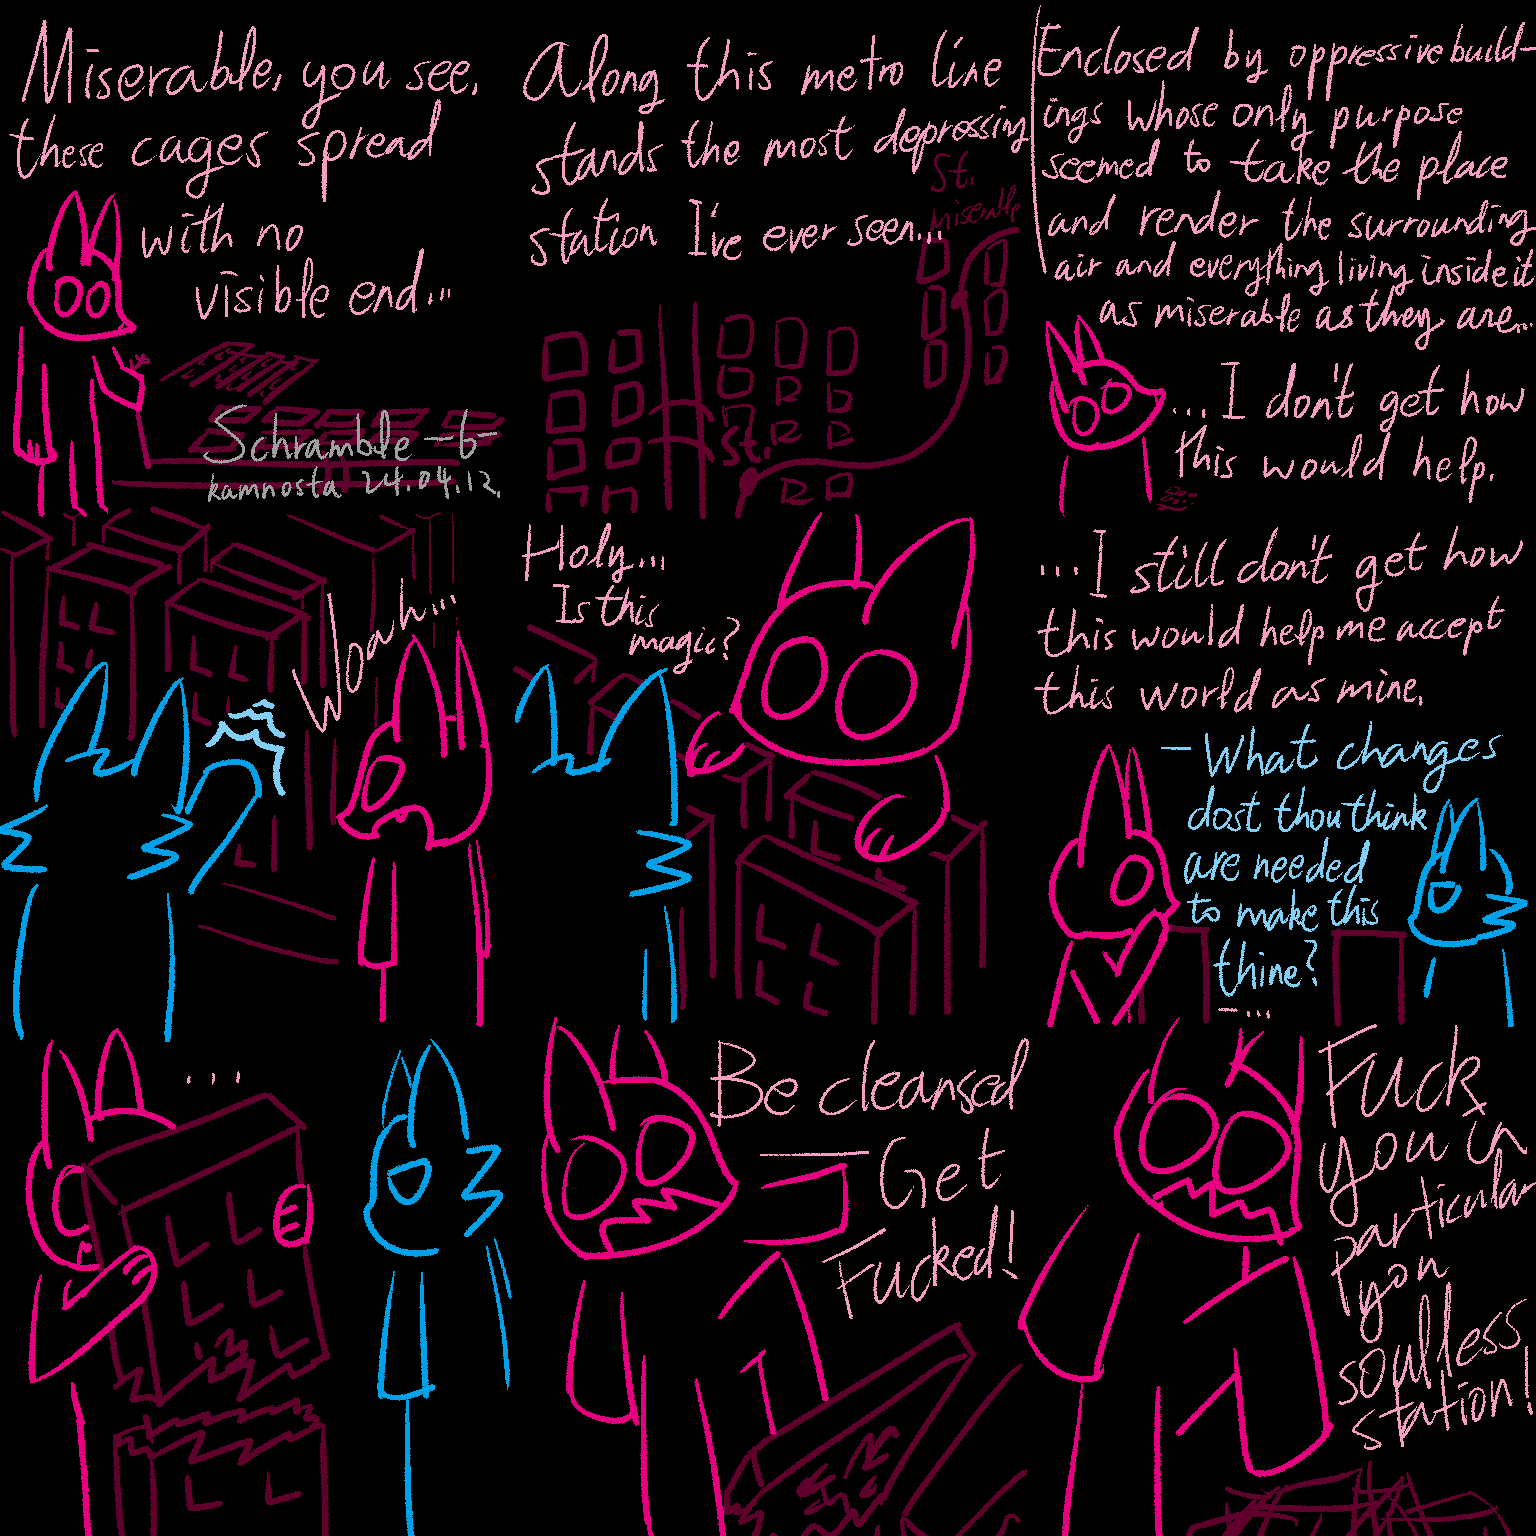 Miserable, you see,
these cages spread
with no
visible end...
Schramble -6-
kamnosta 24.04.12.
Along this metro line
stands the most depressing
station I've ever seen...
St.
miserable
St.
Enclosed by oppressive build-
ings whose only purpose
seemed to take the place
and render the surrounding
air and everything living inside it
as miserable as they are...
...I don't get how
this would help.
Woah...
Holy...
Is this
magic?
...I still don't get how
this would help me accept
this world as mine.
- What changes
dost thou think
are needed
to make this
thine?
-...
...
Be cleansed
Get
Fucked!
Fuck
you in
particular
you
soulless
station!